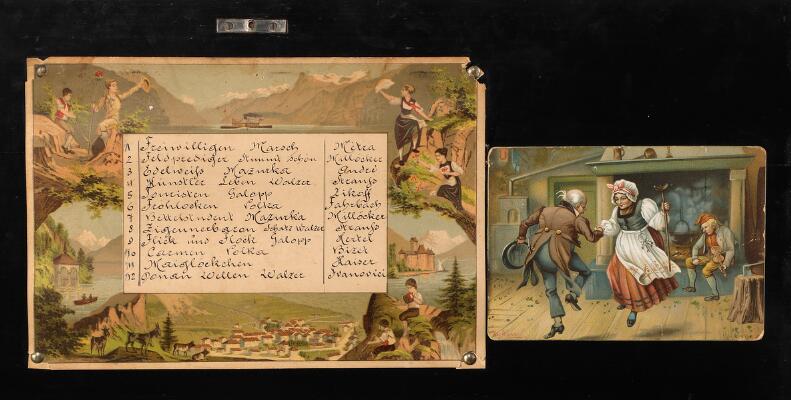 1 Freiwilligen Marsch Métra
2 Feldprediger Nimms Schön Millöcker
3 Edelweiss Mazurka
4 Künstler Leben Walzer Strauss
5 Touristen Galopp Zikoff
6 Frohlocken Polka Fahrbach
7 Bettelstudent Mazurka Millöcker
8 Zigeunerbaron Schatz Walzer Strauss
9 Flick und Flock Galopp Hertel
10 Carmen Polka Bizet
11 Maiglöckchen Kaiser
12 Donau Wellen Walzer Ivanovici